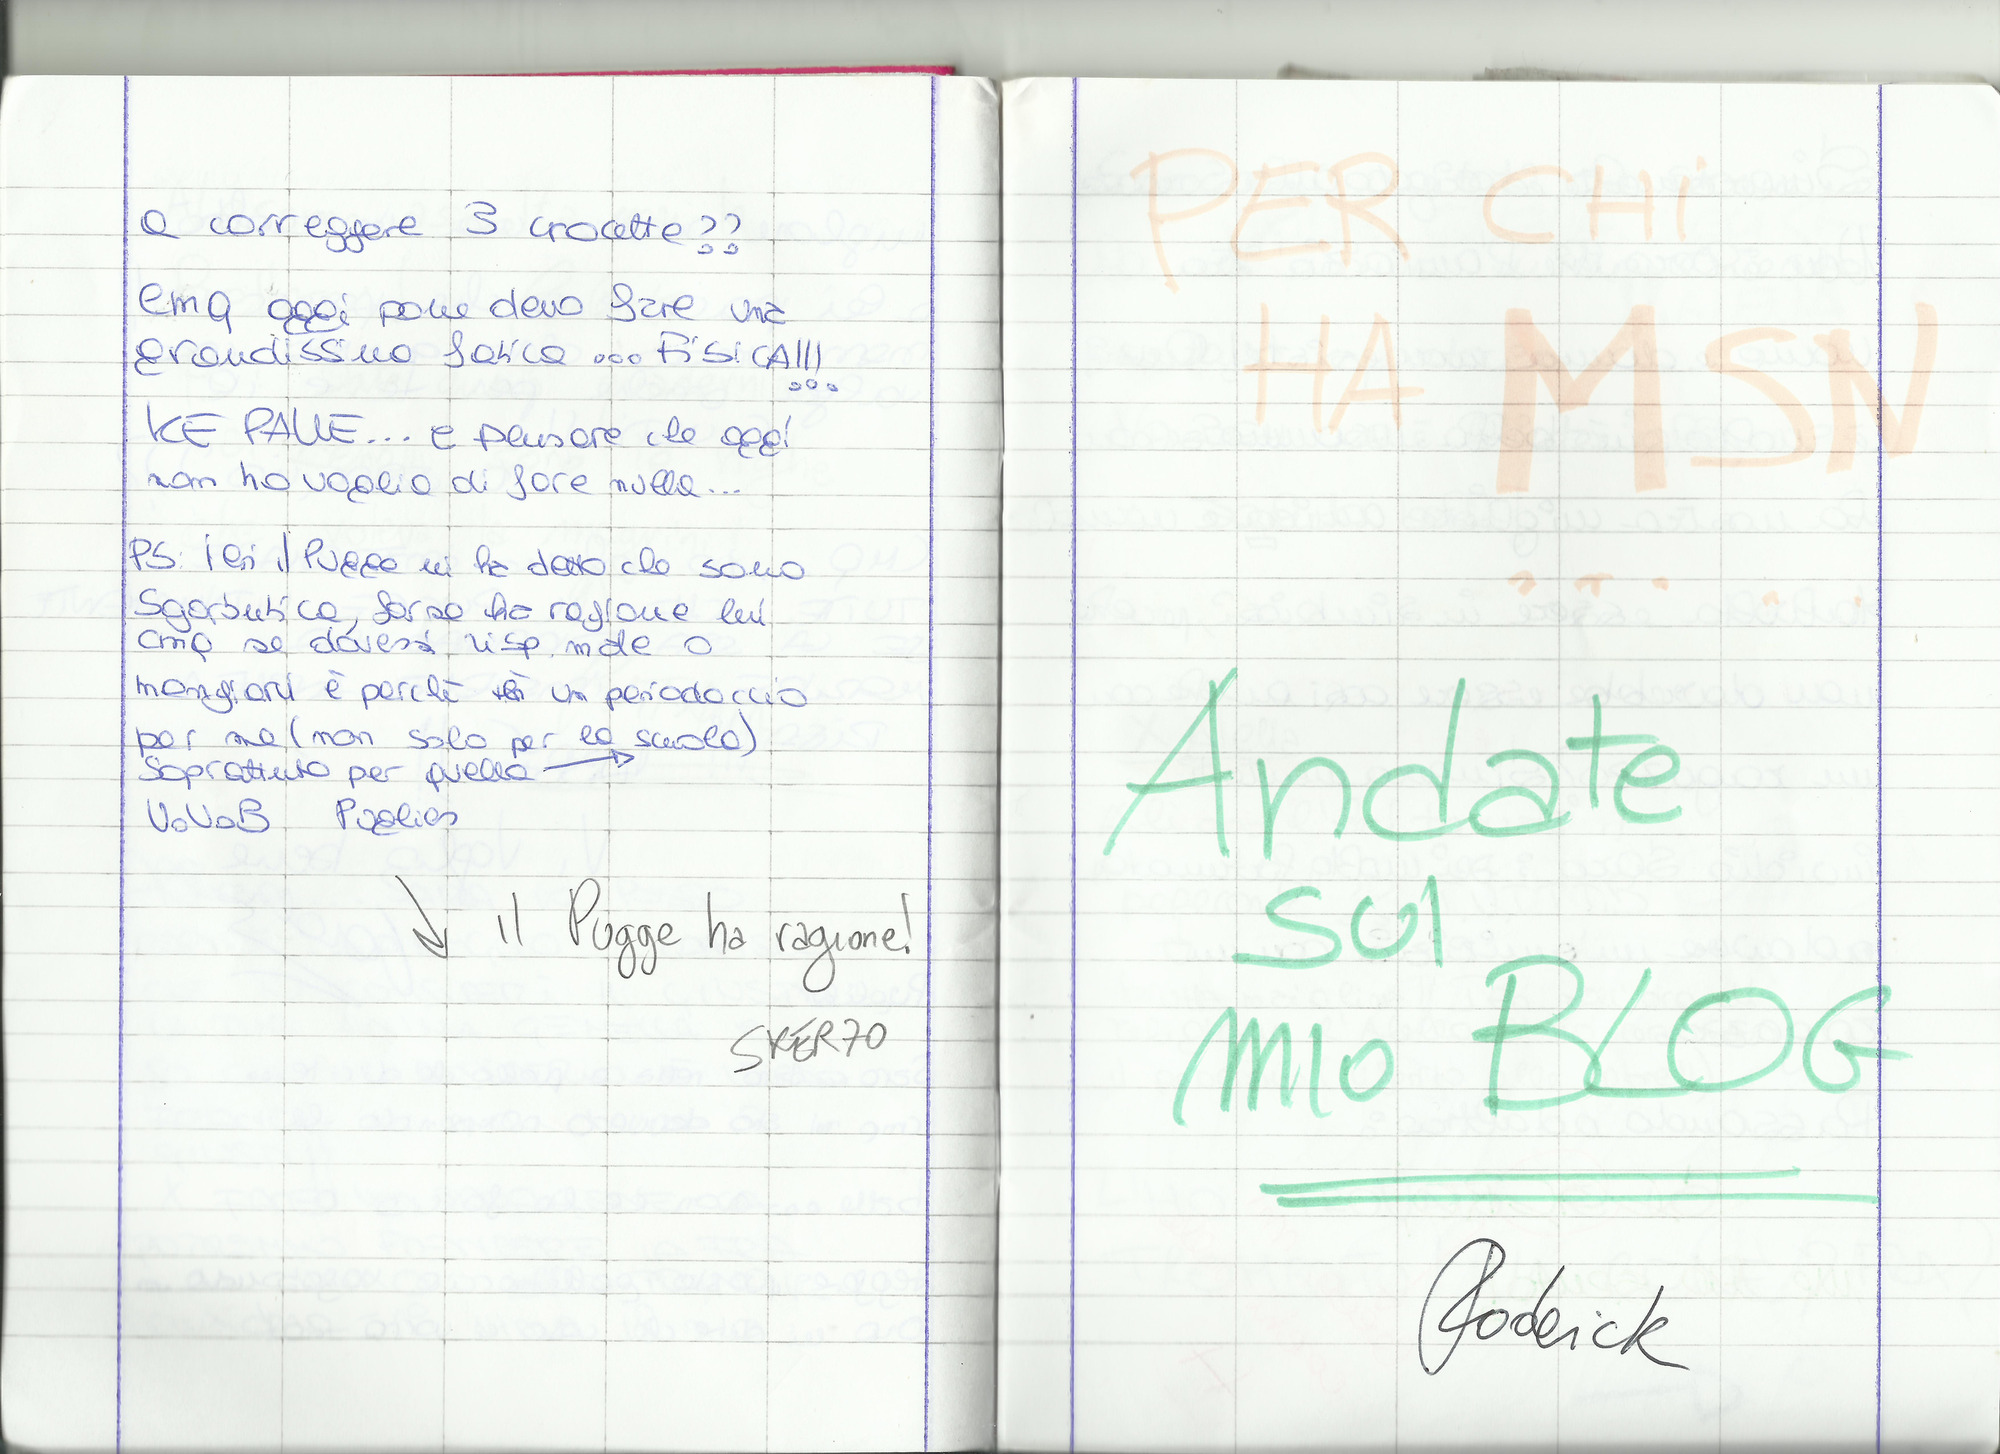 a correggere 3 crocette??
cmq oggi pome devo fare una
grandissima fatica ... FiSiCA!!!
KE PALLE... e pensare che oggi
non ho voglia di fare nulla...
PS: ieri il Pugge mi ha detto che sono
Sgorbutica, forse ha ragione lui
cmq se dovessi risp. male o
mangiarvi è perchè è un periodaccio
per me (non solo per la scuola)
soprattutto per quella →
V.V.B
↓ il Pugge ha ragione!
SKER70
PER CHi
HA MSN
...
Andate
sul
mio BLOG
Roderick